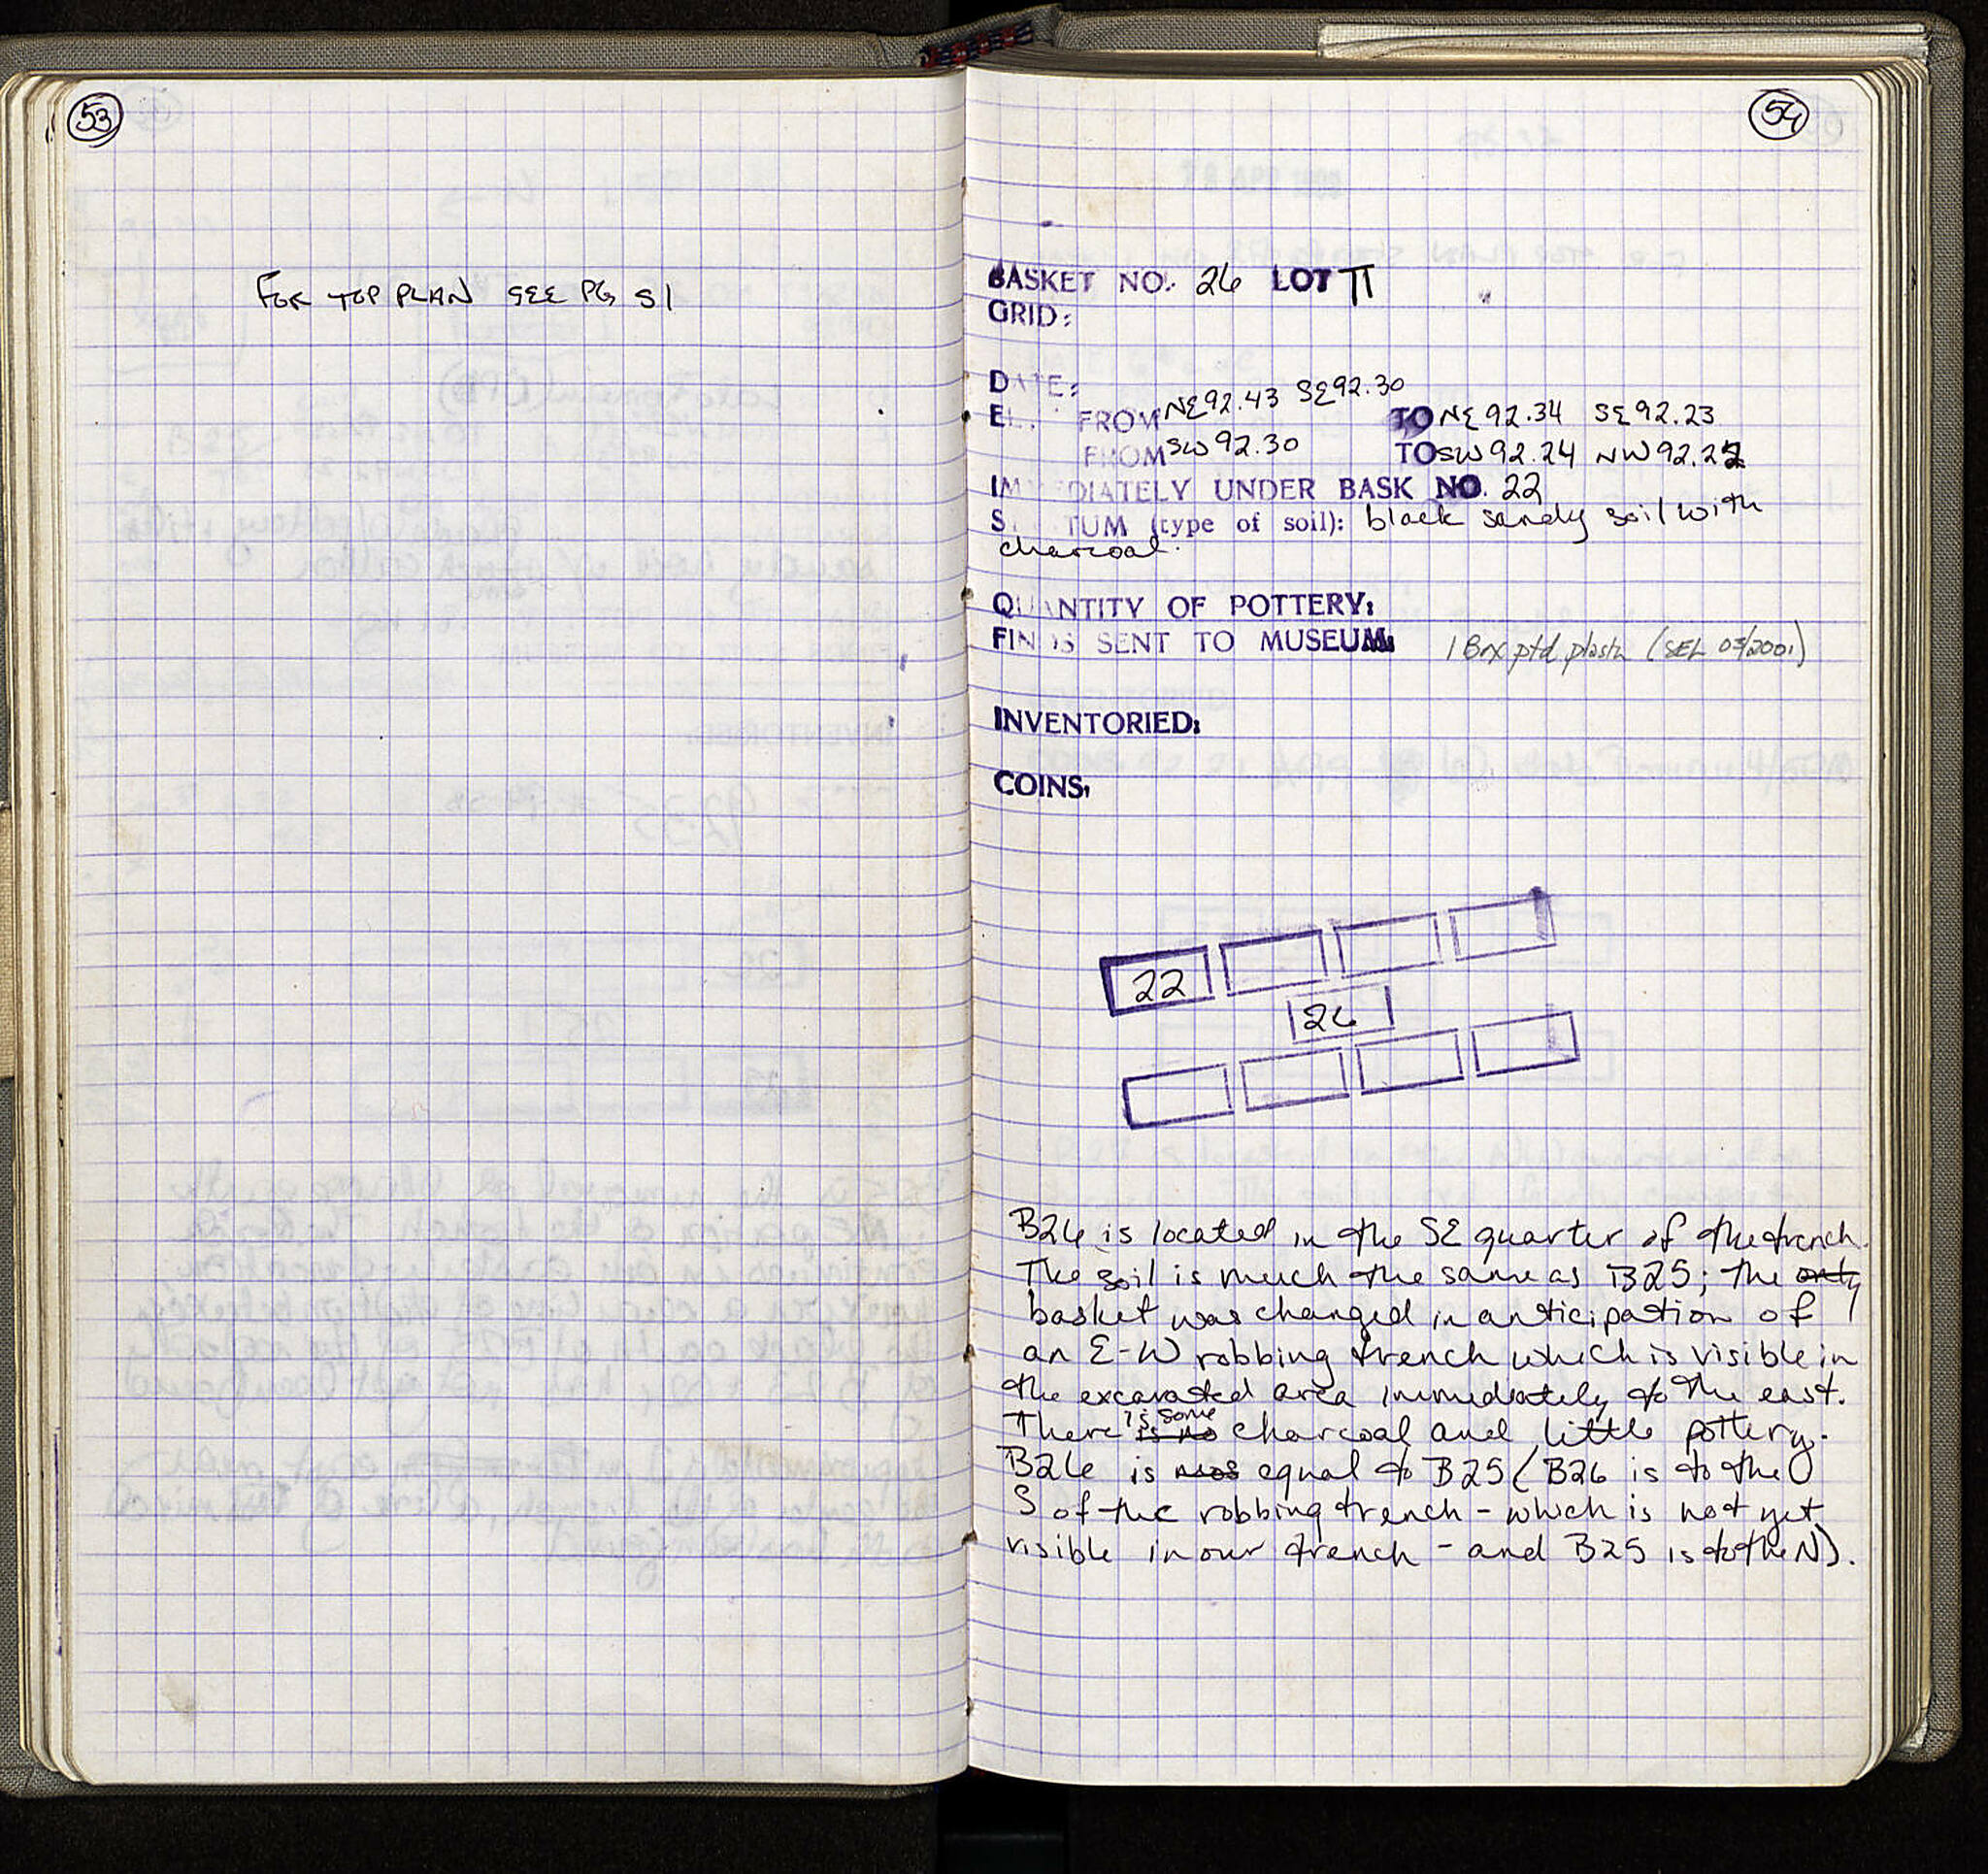 53
FOR TOP PLAN SEE PG 51
54
BASKET NO. 26 LOT II
GRID:
DATE:
EL. FROM NE 92.43 SE 92.30 TO NE 92.34 SE 92.23
FROM SW 92.30 TO SW 92.24 NW 92.22
IMMEDIATELY UNDER BASK NO. 22
STRATUM (type of soil): black sandy soil with
charcoal.
QUANTITY OF POTTERY:
FINDS SENT TO MUSEUM: 1 Box ptd plastr (SEL 03/2001)
INVENTORIED:
COINS:
22
26
B26 is located in the SE quarter of the trench.
The soil is much the same as B25; the only
basket was changed in anticipation of
an E-W robbing trench which is visible in
the excavated area immediately to the east.
There is some is no charcoal and little pottery.
B26 is equal to B25 (B26 is to the
S of the robbing trench - which is not yet
visible in our trench - and B25 is to the N).